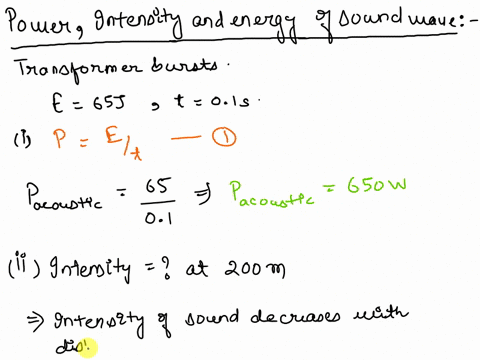 Power, Intensity and energy of sound wave:-
Transformer bursts.
E = 65J , t = 0.1s.
(i) P = E/t — ①
Pacoustic = 65/0.1 ⇒ Pacoustic = 650W
(ii) Intensity = ? at 200m
⇒ Intensity of sound decreases with
dis